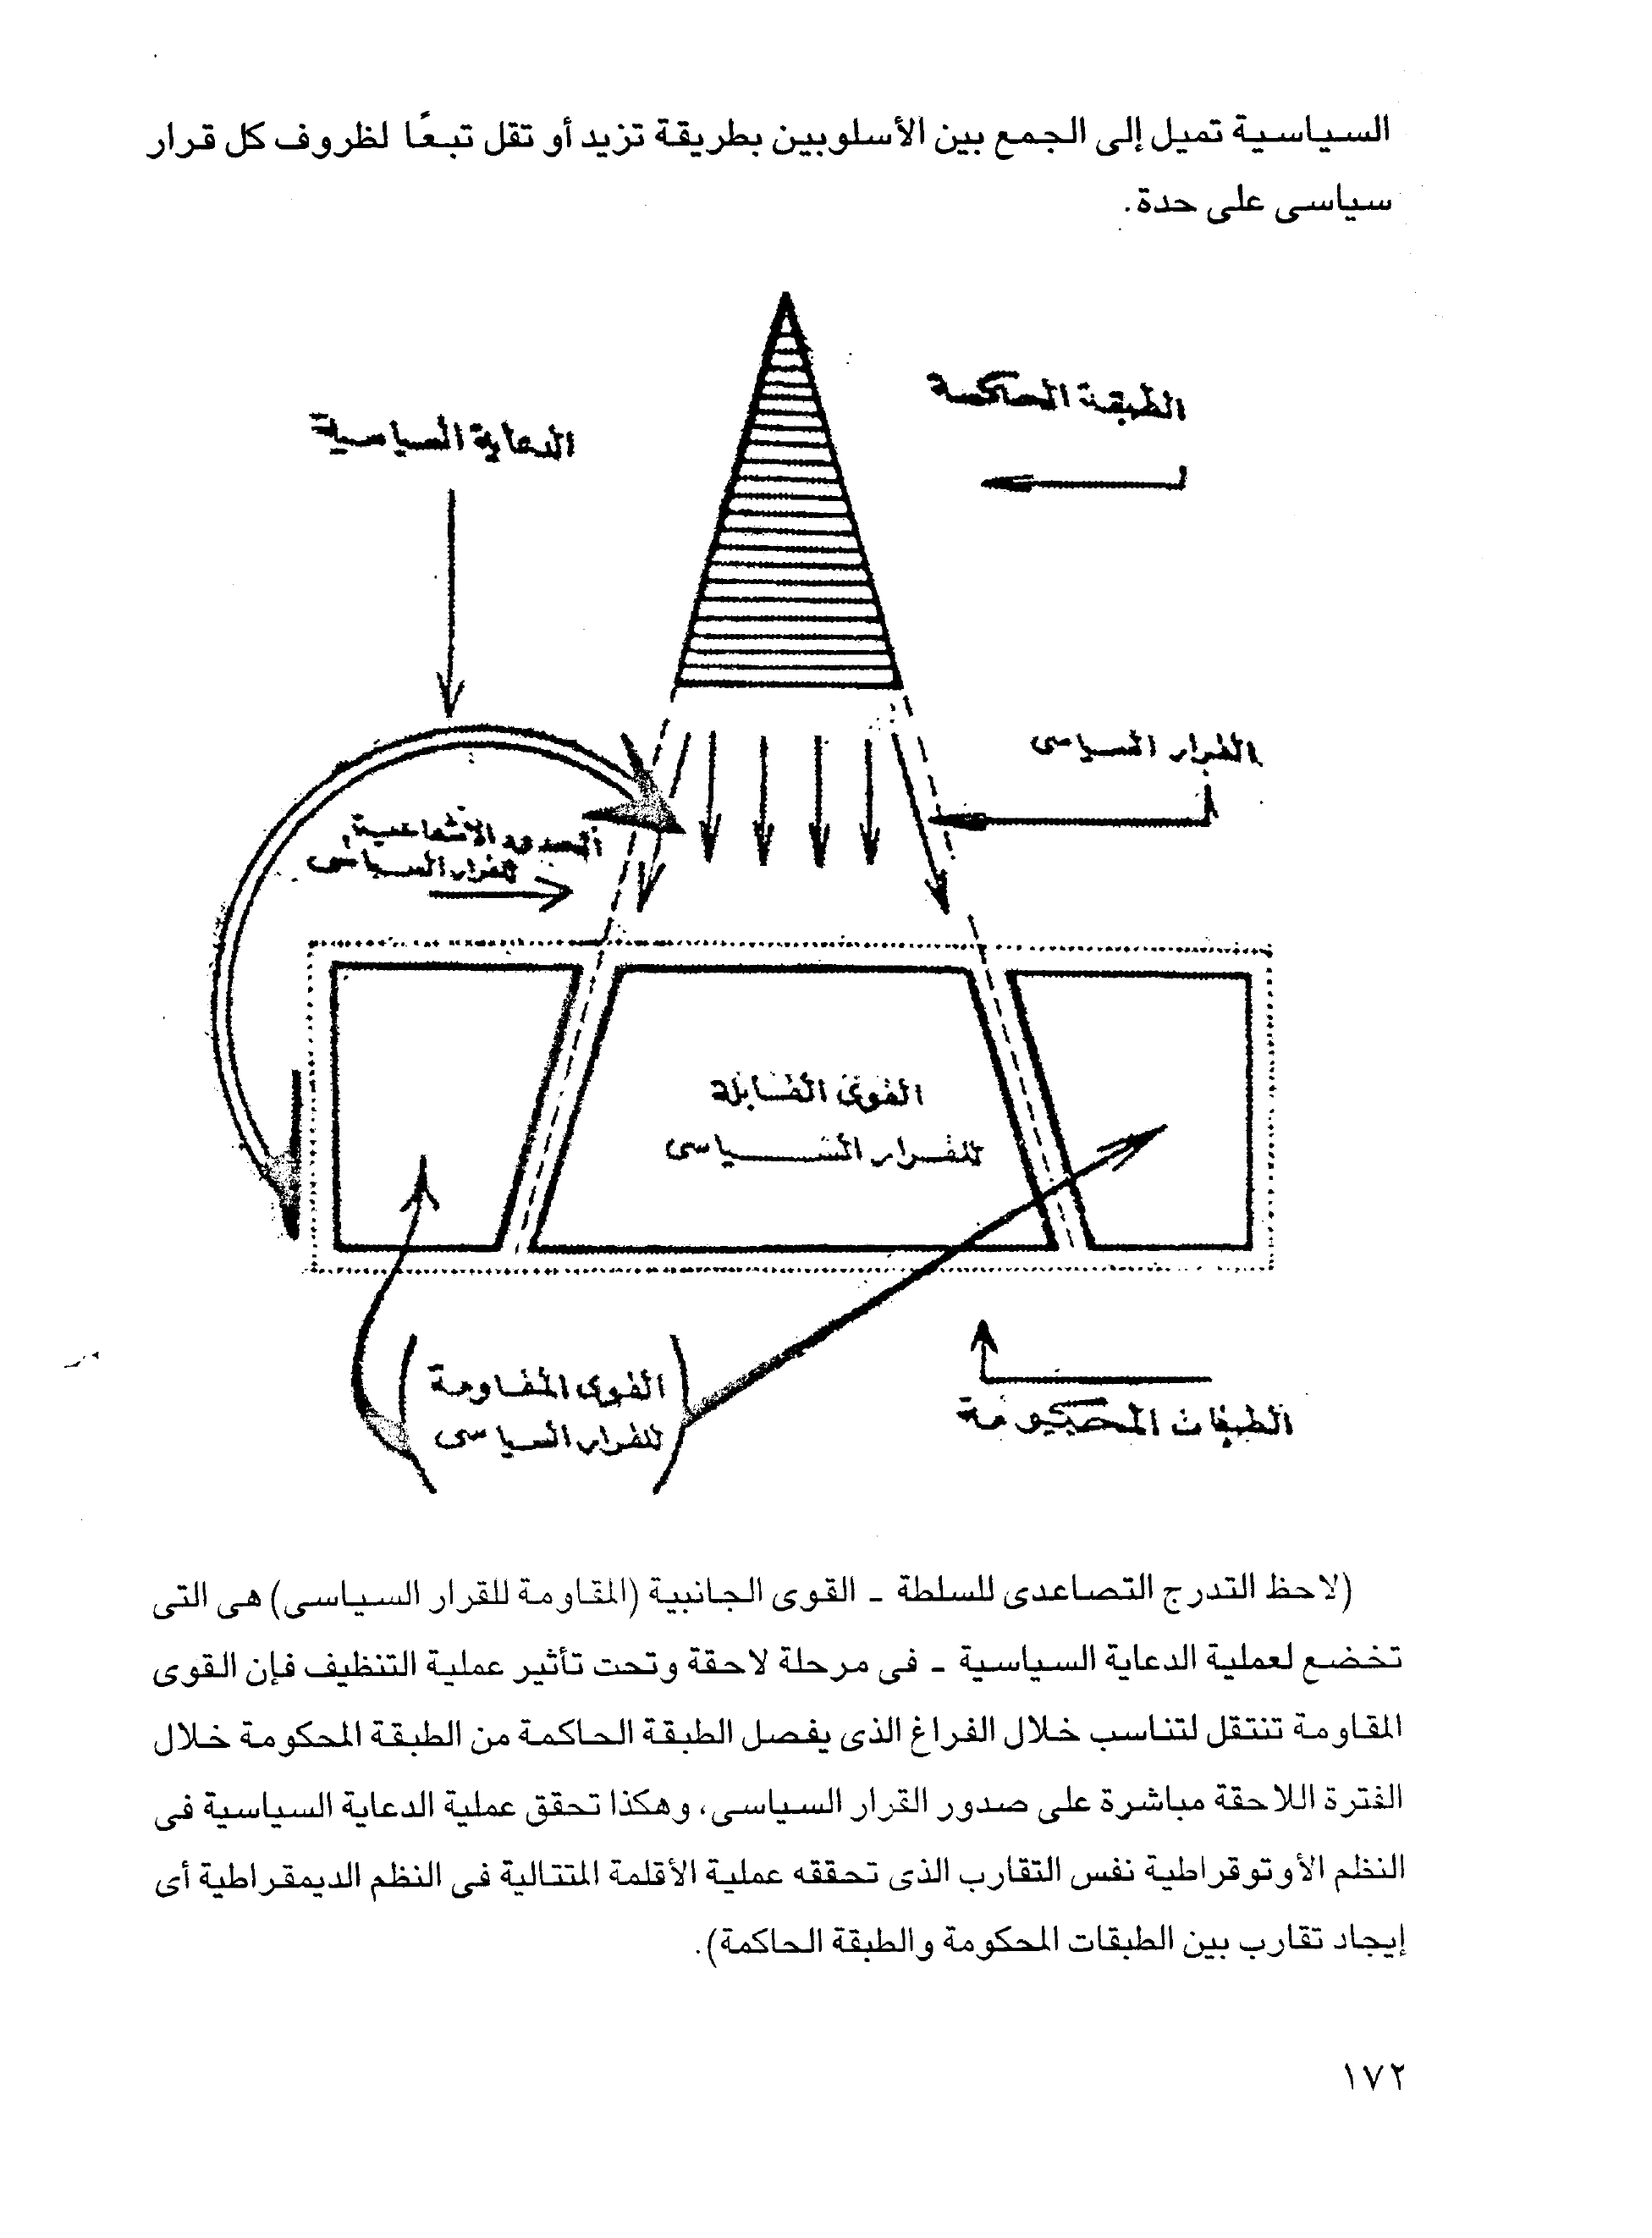 السياسية تميل إلى الجمع بين الأسلوبين بطريقة تزيد أو تقل تبعًا لظروف كل قرار
سياسى على حدة.
الطبقة الحاكمة
الدعاية السياسية
القرار السياسى
الحدود الإشعاعية
للقرار السياسى
القوى القابلة
للقرار السياسى
القوى المقاومة
للقرار السياسى
الطبقات المحكومة
(لاحظ التدرج التصاعدى للسلطة ـ القوى الجانبية (المقاومة للقرار السياسى) هى التى
تخضع لعملية الدعاية السياسية ـ فى مرحلة لاحقة وتحت تأثير عملية التنظيف فإن القوى
المقاومة تنتقل لتناسب خلال الفراغ الذى يفصل الطبقة الحاكمة من الطبقة المحكومة خلال
الفترة اللاحقة مباشرة على صدور القرار السياسى، وهكذا تحقق عملية الدعاية السياسية فى
النظم الأوتوقراطية نفس التقارب الذى تحققه عملية الأقلمة المتتالية فى النظم الديمقراطية أى
إيجاد تقارب بين الطبقات المحكومة والطبقة الحاكمة).
١٧٢